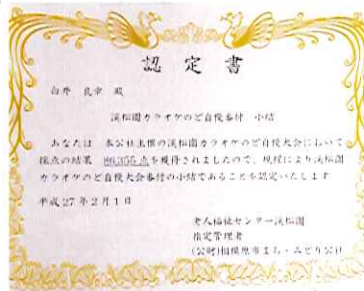 認定書
白井 良幸 殿
渓松園カラオケのど自慢番付 小結
あなたは 本公社主催の渓松園カラオケのど自慢大会において
採点の結果 86.355点を獲得されましたので、規程により渓松園
カラオケのど自慢大会番付の小結であることを認定いたします
平成27年2月1日
老人福祉センター渓松園
指定管理者
(公財)相模原市まち・みどり公社